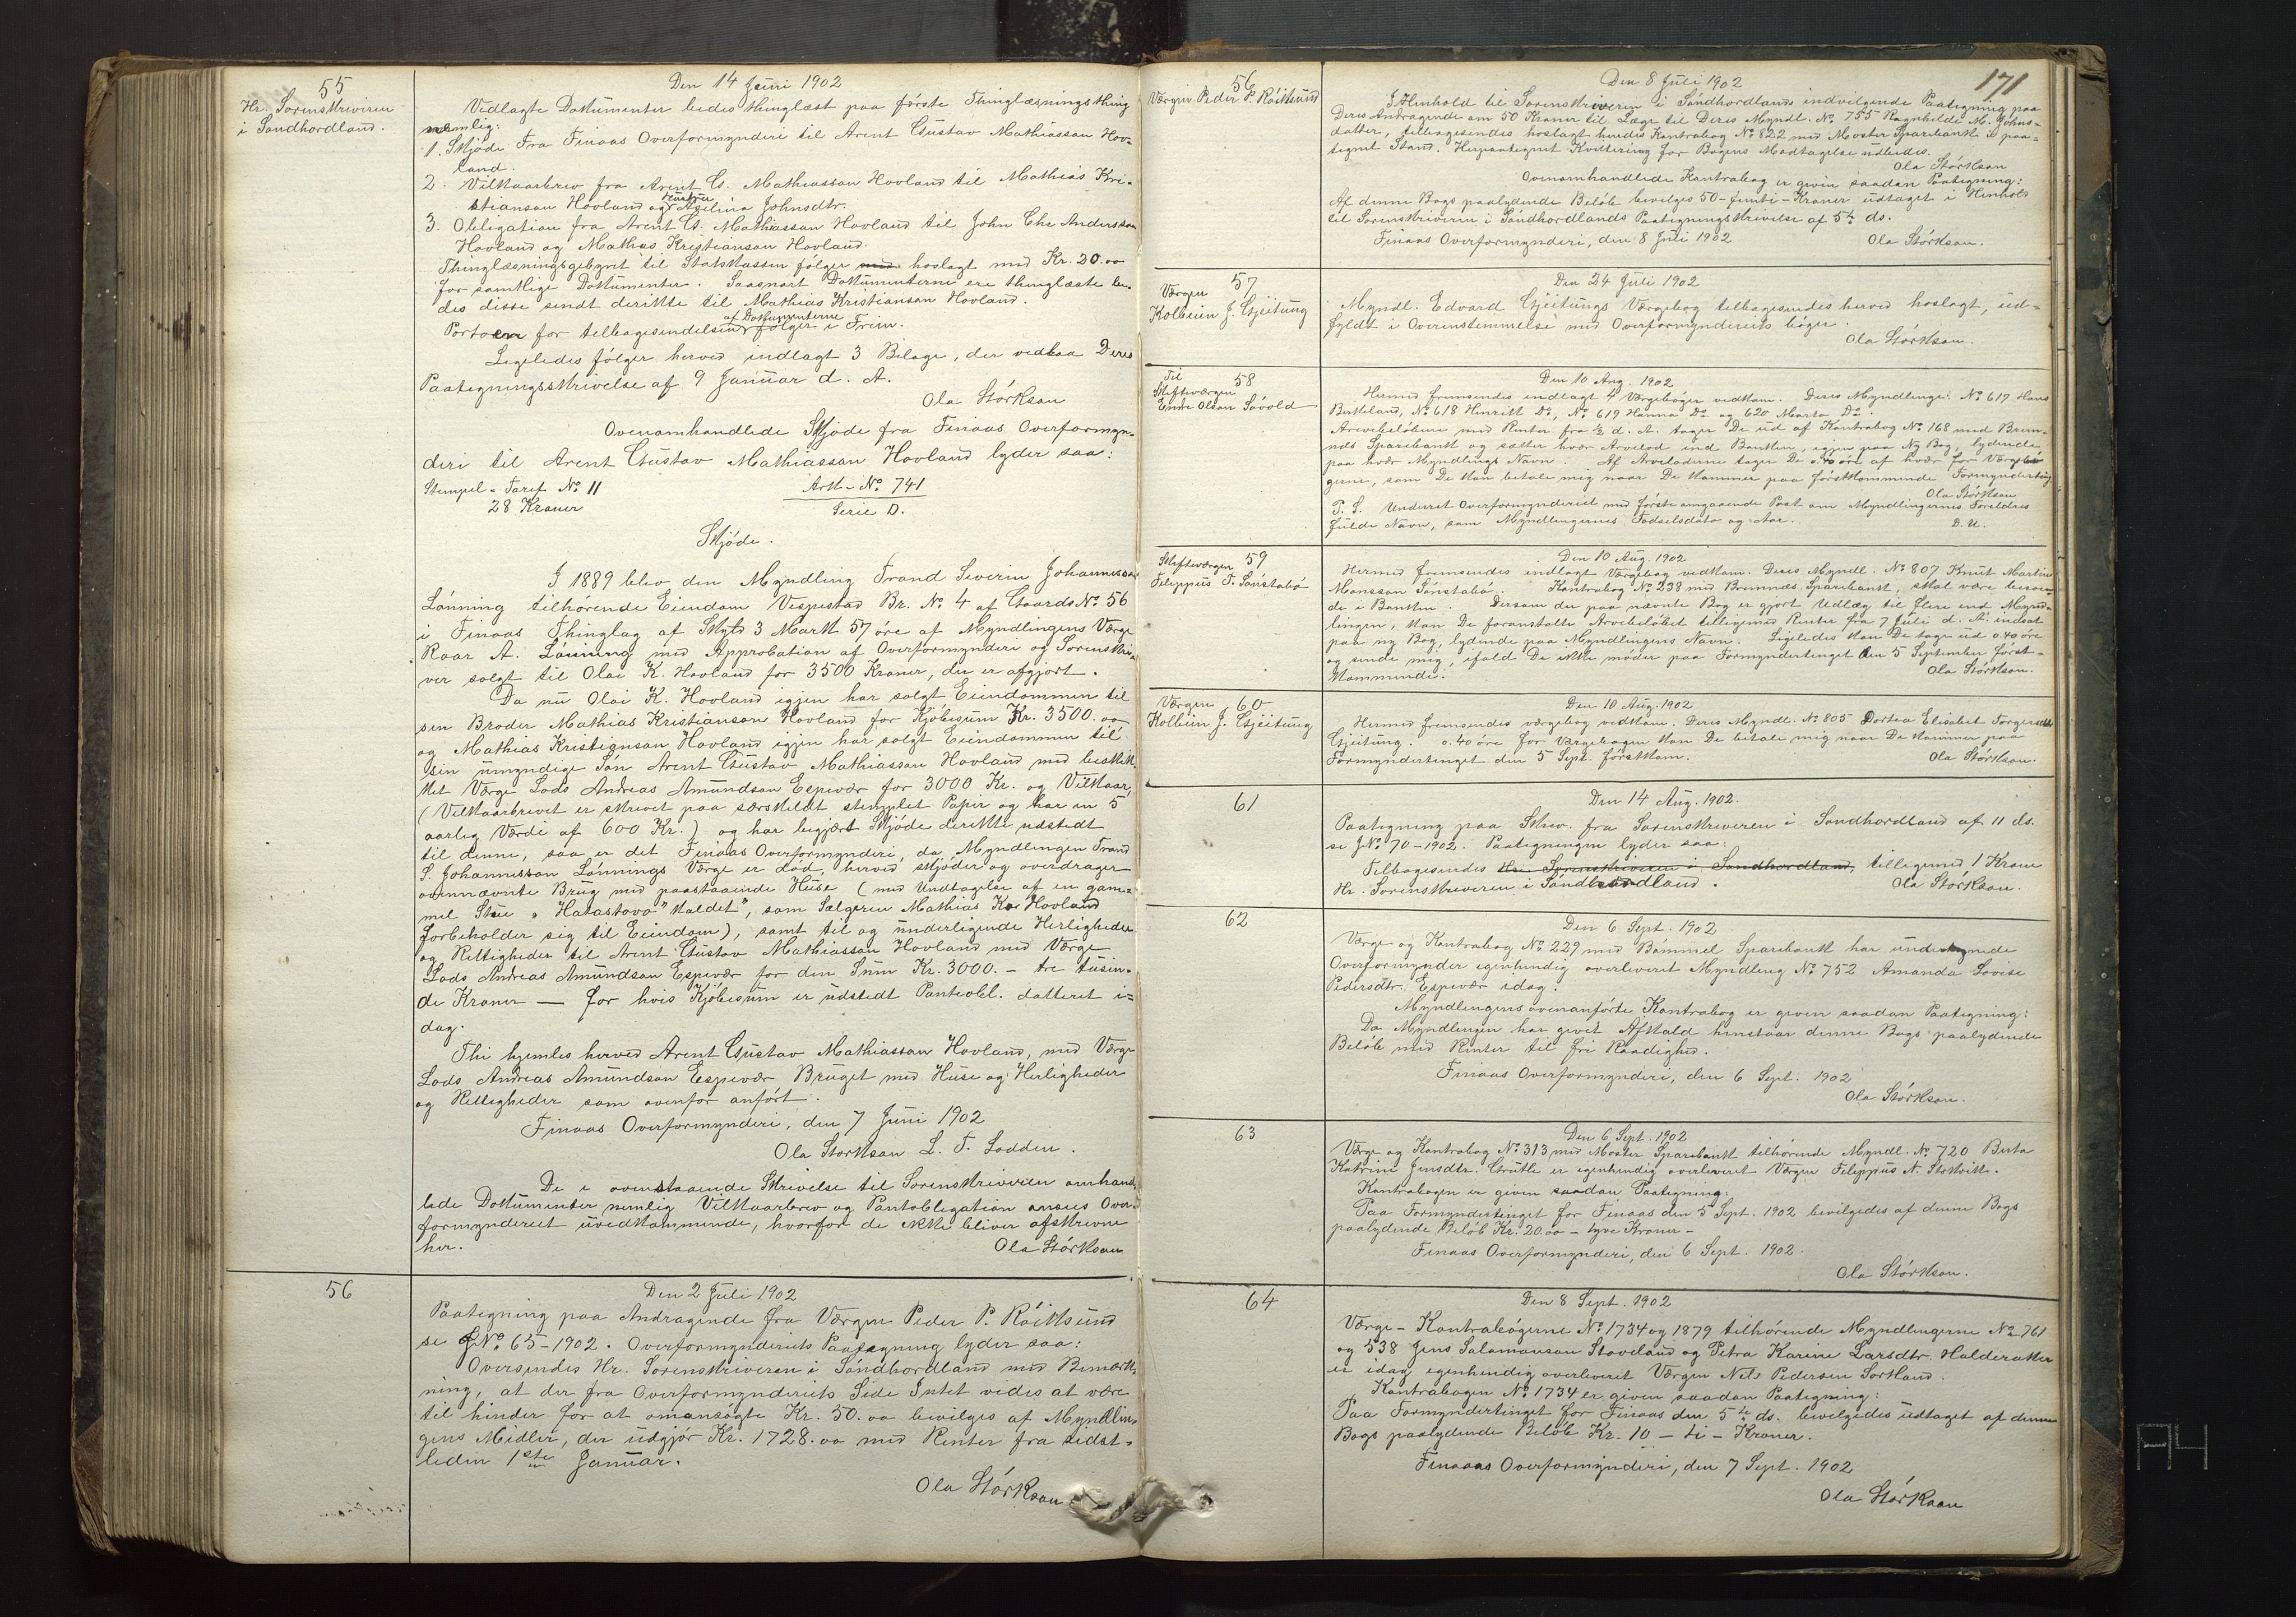 55
Hr. Sorenskriveren
i Søndhordland.
Den 14 Juni 1902
Vedlagte Dokumenter bedes thinglæst paa første Thinglæsningsthing
nemlig:
1. Skjøde Fra Finaas Overformynderi til Arent Gustav Mathiassan Hov-
land.
2. Vilkaarbrev fra Arent G. Mathiassan Hovland til Mathias Kri-
stiansan Hovland og Hustru Johnsdtr.
3. Obligation fra Arent G. Mathiassan Hovland til John Chr Anderssan
Hovland og Mathias Kristiansan Hovland.
Thinglæsningsgebyret til Statskassen følger hoslagt med Kr. 20.oo
for samtlige Dokumenter. Saasnart Dokumenterne ere thinglæste be-
des disse sendt derikte til Mathias Kristiansan Hovland.
Portoen for tilbagesendelsen af Dokumenterne følger i Frim.
Ligeledes følger herved indlagt 3 Bilage, der vedlaa Deres
Paategningsskrivelse af 9 Januar d. A.
Ola Størksan
Ovenamhandlede Skjøde fra Finaas Overformyn-
deri til Arent Gustav Mathiassan Hovland lyder saa:
Stempel-Taref No 11
28 Kroner
Ark-No 741
Serie D.
Skjøde.
I 1889 blev den Myndling Trand Severin Johannessan
Lønning tilhørende Eiendam Vespestad Br. No 4 af Gaards No 56
i Finaas Thinglag af Skyld 3 Mark 57 øre af Myndlingens Værge
Roar A. Lønning med Approbation af Overformynderi og Sorenskri-
ver solgt til Olai K. Hovland for 3500 Kroner, der er afgjort.
Da nu Olai K. Hovland igjen har solgt Eiendommen til
sin Broder Mathias Kristiansan Hovland for Kjøbesum Kr. 3500.oo
og Mathias Kristiansan Hovland igjen har solgt Eiendommen til
sin umyndige Søn Arent Gustav Mathiassan Hovland med beskik-
ket Værge Lods Andreas Amundsan Espevær for 3000 Kr. og Vilkaar,
(Vilkaarbrevet er skrevet paa særskildt stemplet Papir og har en 5
aarlig Værdi af 600 Kr.) og har begjært Skjøde derikte udstedt
til denne, saa er det Finaas Overformynderi, da Myndlingen Trand
S. Johannessan Lønnings Værge er død, herved skjøder og overdrager
ovennævnte Brug med paastaaende Huse (med Undtagelse af en gam-
mel Stue "Hatastova" kaldet, som Sælgeren Mathias Kr Hovland
forbeholder sig til Eiendam), samt til og underligende Herligheder
og Rettigheder til Arent Gustav Mathiassan Hovland med Værge
Lods Andreas Amundsan Espevær for den Sum Kr. 3000. - tre tusin-
de Kroner — for hvis Kjøbesum er udstedt Panteobl. datteret i-
dag.
Thi hjemles herved Arent Gustav Mathiassan Hovland, med Værge
Lods Andreas Amundsan Espevær, Bruget med Huse og Herligheder
og Rettigheder som ovenfor anført.
Finaas Overformynderi, den 7 Juni 1902
Ola Størksan L. T. Lodden.
De i ovenstaaende Skrivelse til Sorenskriveren omhand-
lede Dokumenter nemlig Vilkaarbrev og Pantobligation ansees Over-
formynderiet uvedkommende, hvorfor de ikke bliver afskrevne
her.
Ola Størksan
56
Den 2 Juli 1902
Paategning paa Andragende fra Værgen Peder P. Røiksund
se JNo 65-1902. Overformynderiets Paategning lyder saa:
Oversendes Hr. Sorenskriveren i Søndhordland med Bemærk-
ning, at der fra Overformynderiets Side Intet vides at være
til hinder for at omansøgte Kr. 50.oo bevilges af Myndlin-
gens Midler, der udgjør Kr. 1728.oo med Renter fra sidst-
leden 1ste Januar.
Ola Størksan
171
56
Værgen Peder P. Røiksund
Den 8 Juli 1902
I Henhold til Sorenskriveren i Søndhordlands indvilgende Paategning paa
Deres Andragende om 50 Kroner til Læge til Deres Myndl. No 755 Ragnhilda M. Johns-
datter, tilbagesendes hoslagt hendes Kontrabog No 822 med Moster Sparebank i paa-
tegnet Stand. Herpaategnet Kvittering for Bogens Modtagelse udbedes.
Ola Størksan
Ovenamhandlede Kontrabog er given saadan Paategning:
Af denne Bogs paalydende Beløb bevilges 50-femti-Kroner udtaget i Henhold
til Sorenskriveren i Søndhordlands Paategningsskrivelse af 5te ds.
Finaas Overformynderi, den 8 Juli 1902
Ola Størksan.
57
Værgen
Kolbein J. Gjeitung
Den 24 Juli 1902
Myndl. Edvard Gjeitungs Værgebog tilbagesendes herved hoslagt, ud-
fyldt i Overensstemmelse med Overformynderiets bøger.
Ola Størksan.
58
Til
Skifteværgen
Endre Olsan Søvold
Den 10 Aug. 1902
Hermed fremsendes indlagt 4 Værgebøger vedkom. Deres Myndlinge: No 617 Hans
No 618 Hinrikk Do, No 619 Hanna Do og 620 Marta Do.
Arvebeløbene med Renter fra d. A. tager De ud af Kontrabog No 168 med Brem-
næs Sparebank og sætter hver Arvelod ind Banken, igjen paa Ny Bog, lydende
paa hver Myndlings Navn. Af Arveloderne tager De 0.40 øre af hver for Værgebø-
gerne, som De kan betale mig naar De kommer paa førstkommende Formynderting
Ola Størksan
P. S. Underret Overformynderiet med første omgaaende Post om Myndlingernes Foreldres
fulde Navn, som Myndlingernes Fødselsdato og Aar.
D. U.
59
Skifteværgen
Filippus T. Sønstabø
Den 10 Aug. 1902
Hermed fremsendes indlagt Værgebog vedkom. Deres Myndl. No 807 Knut Martin
Monsson Sønstabø. Kontrabog No 238 med Bremnæs Sparebank, skal være beroen-
de i Banken. Dersom der paa nævnte Bog er gjort Udlæg til flere end Mynd-
lingen, kan De foranstalte Arvebeløbet tilligemed Renter fra 7 Juli d. A. indsat
paa ny Bog, lydende paa Myndlingens Navn. Ligeledes kan De tage ud 0.40 øre
og sende mig, ifald De ikke møder paa Formyndertinget den 5 September først-
kommende.
Ola Størksan.
60
Værgen
Kolbein J. Gjeitung
Den 10 Aug. 1902
Hermed fremsendes værgebog vedkom. Deres Myndl. No 805 Dortea Elisabet Torgersdtr
Gjeitung. 0.40 øre for Værgebogen kan De betale mig naar De kommer paa
Formyndertinget den 5 Sept. førstkom.
Ola Størksan.
61
Den 14 Aug. 1902.
Paategning paa Skriv. fra Sorenskriveren i Søndhordland af 11 ds.
se JNo 70-1902. Paategningen lyder saa:
Tilbagesendes Hr. Sorenskriveren i Søndhordland, tilligemed 1 Krone
Hr. Sorenskriveren i Søndhordland.
Ola Størksan.
62
Den 6 Sept. 1902
Værge og Kontrabog No 229 med Bømmel Sparebank har undertegnede
Overformynder egenhendig overleveret Myndling No 752 Amanda Lovise
Pedersdtr. Espevær idag.
Myndlingens ovenanførte Kontrabog er given saadan Paategning:
Da Myndlingen har givet Afkald henstaar denne Bogs paalydende
Beløb med Renter til fri Raadighed.
Finaas Overformynderi, den 6 Sept. 1902
Ola Størksan.
63
Den 6 Sept. 1902
Værge og Kontrabog No 313 med Moster Sparebank tilhørende Myndl. No 720 Berta
Katrine Jensdtr. er egenhendig overleveret Værgen Filippus N. Stokvik.
Kontrabogen er given saadan Paategning:
Paa Formyndertinget for Finaas den 5 Sept. 1902 bevilgedes af denne Bogs
paalydende Beløb Kr. 20.oo - tyve Kroner -
Finaas Overformynderi, den 6 Sept. 1902.
Ola Størksan.
64
Den 8 Sept. 1902
Værge- Kontrabøgerne No 1734 og 1879 tilhørende Myndlingerne No 761
og 538 Jens Salamonsan Stoveland og Petra Karine Larsdtr. Halderaker
er idag egenhendig overleveret Værgen Nils Pedersen Sortland.
Kontrabogen No 1734 er given saadan Paategning:
Paa Formyndertinget for Finaas den 5te ds. bevilgedes udtaget af denne
Bogs paalydende Beløb Kr. 10 - ti - Kroner.
Finaaas Overformynderi, den 7 Sept. 1902
Ola Størksan